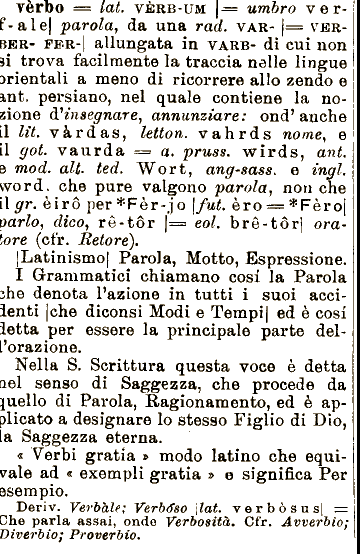 vèrbo = lat. VÈRB-UM |= umbro ver-
f-ale| parola, da una rad. VAR- |= VER-
BER- FER-| allungata in VARB- di cui non
si trova facilmente la traccia nelle lingue
orientali a meno di ricorrere allo zendo e
ant. persiano, nel quale contiene la no-
zione d'insegnare, annunziare: ond' anche
il lit. vàrdas, letton. vahrds nome, e
il got. vaurda = a. pruss. wirds, ant.
e mod. alt. ted. Wort, ang-sass. e ingl.
word. che pure valgono parola, non che
il gr. èirô per *Fèr-jo |fut. èro = *Fèro|
parlo, dico, rê-tôr |= eol. brê-tôr| ora-
tore (cfr. Retore).
|Latinismo| Parola, Motto, Espressione.
I Grammatici chiamano cosí la Parola
che denota l'azione in tutti i suoi acci-
denti |che diconsi Modi e Tempi| ed è cosí
detta per essere la principale parte del-
l'orazione.
Nella S. Scrittura questa voce è detta
nel senso di Saggezza, che procede da
quello di Parola, Ragionamento, ed è ap-
plicato a designare lo stesso Figlio di Dio,
la Saggezza eterna.
« Verbi gratia » modo latino che equi-
vale ad « exempli gratia » e significa Per
esempio.
Deriv. Verbàle; Verbóso |lat. verbòsus| =
Che parla assai, onde Verbosità. Cfr. Avverbio;
Diverbio; Proverbio.